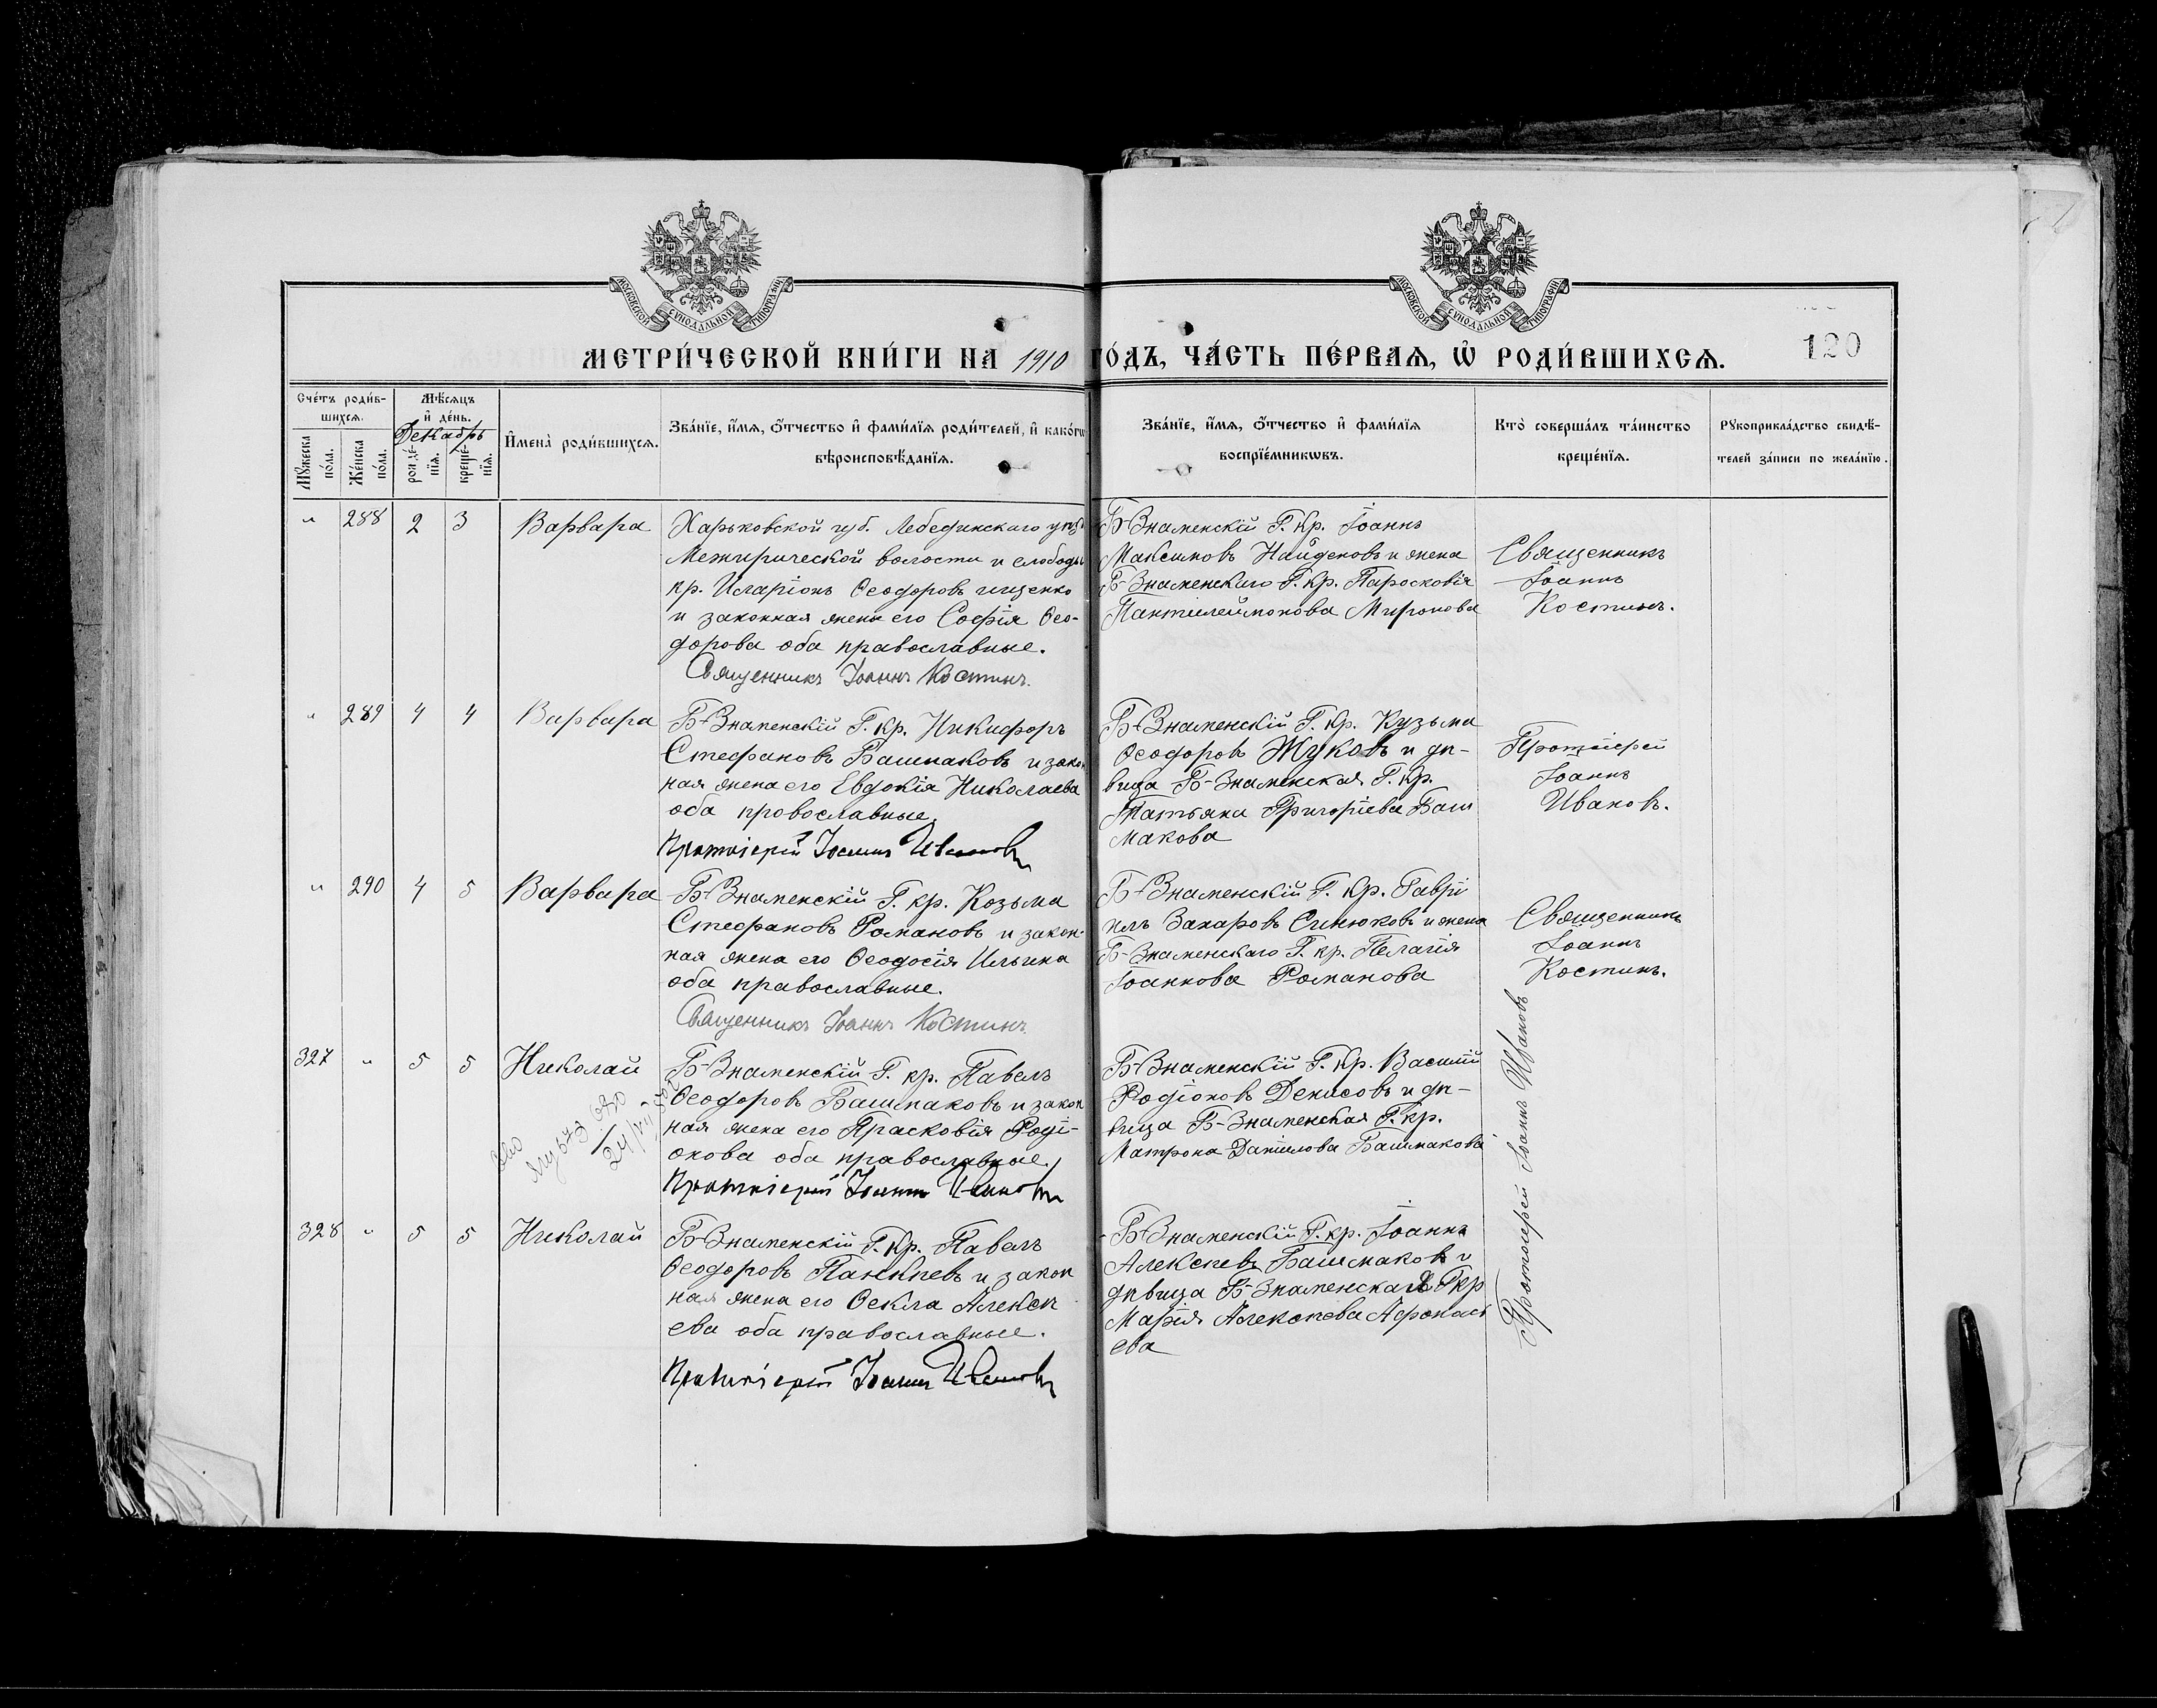 МОСКОВСКОЙ СѴНОДАЛЬНОЙ ТИПОГРАФІИ
МОСКОВСКОЙ СѴНОДАЛЬНОЙ ТИПОГРАФІИ
МЕТРИ́ЧЕСКОЙ КНИ́ГИ НА 1910 ГО́ДЪ, ЧА́СТЬ ПЕ́РВАѦ, Ѡ҆ РОДИ́ВШИХСѦ.
120
Сче́тъ роди́в-
шихсѧ.
Мꙋ́жеска
по́ла.
Же́нска
по́ла.
Мѣ́сѧцъ
и҆ де́нь.
Декабрь
рожде́-
нїѧ.
креще́-
нїѧ.
И҆мена̀ роди́вшихсѧ.
Зва́нїе, и҆́мѧ, ѻ҆́тчество и҆ фами́лїѧ роди́телей, и҆ како́гѡ
вѣроисповѣ́данїѧ.
Зва́нїе, и҆́мѧ, ѻ҆́тчество и҆ фами́лїѧ
воспрїе́мникѡвъ.
Кто̀ соверша́лъ та́инство
креще́нїѧ.
Рꙋкоприкла́дство свидѣ́-
телей за́писи по жела́нїю.
" 288 2 3 Варвара
Харьковской губ. Лебединскаго уѣз
Межирической волости и слободы
кр. Иларіонъ Ѳеодоровъ ищенко
и законная жена его Софія Ѳео-
дорова оба православные.
Священникъ Іоаннъ Костинъ.
Б-Знаменскій Г. кр. Іоаннъ
Максимовъ Найденовъ и жена
Б-Знаменскаго Г. кр. Паросковія
Пантилеймонова Миронова
Священникъ
Іоаннъ
Костинъ.
" 289 4 4 Варвара
Б-Знаменскій Г. кр. Никифоръ
Стефановъ Башмаковъ и закон
ная жена его Евдокія Николаева
оба провославные.
Протоіерей Іоаннъ Ивановъ
Б-Знаменскій Г. кр. Кузьма
Ѳеодоровъ Жуковъ и дѣ-
вица Б-Знаменская Г. кр.
Татьяна Григоріева Баш
макова
Протоіерей
Іоаннъ
Ивановъ.
" 290 4 5 Варвара
Б-Знаменскій Г. кр. Козьма
Стефановъ Романовъ и закон-
ная жена его Ѳеодосія Ильина
оба православные.
Священникъ Іоаннъ Костинъ
Б-Знаменскій Г. кр. Гаврі
илъ Захаровъ Синюковъ и жена
Б-Знаменскаго Г. кр. Пелагія
Іоаннова Романова
Священникъ
Іоаннъ
Костинъ.
327 " 5 5 Николай
Б-Знаменскій Г. кр. Павелъ
Ѳеодоровъ Башмаковъ и закон
ная жена его Прасковія Роді-
онова оба православные.
Протоіерей Іоаннъ Ивановъ
Б-Знаменскій Г. кр. Василій
Родіоновъ Денисовъ и дѣ-
вица Б-Знаменская Г. кр.
Матрона Данилова Башмакова
Протоіерей Іоаннъ Ивановъ
328 " 5 5 Николай
Б-Знаменскій Г. кр. Павелъ
Ѳеодоровъ Панкѣевъ и закон
ная жена его Ѳекла Алексѣ
ева оба православные.
Протоіерей Іоаннъ Ивановъ
Б-Знаменскій Г. кр. Іоаннъ
Алексѣевъ Башмаковъ и
дѣвица Б-Знаменская Г кр
Марія Алексѣева Афонась
ева